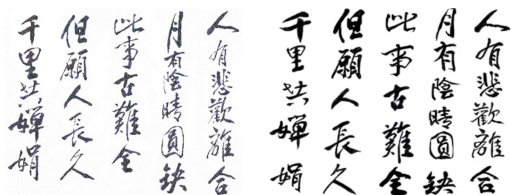 人有悲歡離合
月有陰晴圓缺
此事古難全
但願人長久
千里共嬋娟
人有悲歡離合
月有陰晴圓缺
此事古難全
但願人長久
千里共嬋娟